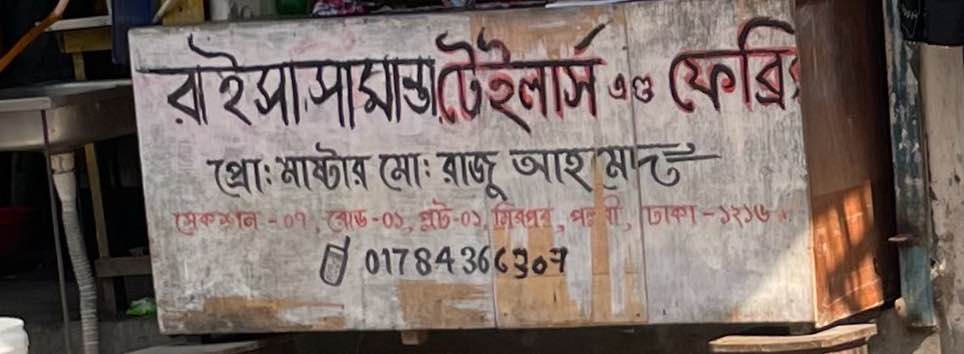 রাইসা সামান্তা টেইলার্স এণ্ড ফেব্রি
প্রো: মাষ্টার মো: রাজু আহমেদ
সেকশান-০৭, রোড-০১, প্লট-০১, মিরপুর, পল্লবী, ঢাকা-১২১৬
01784366307